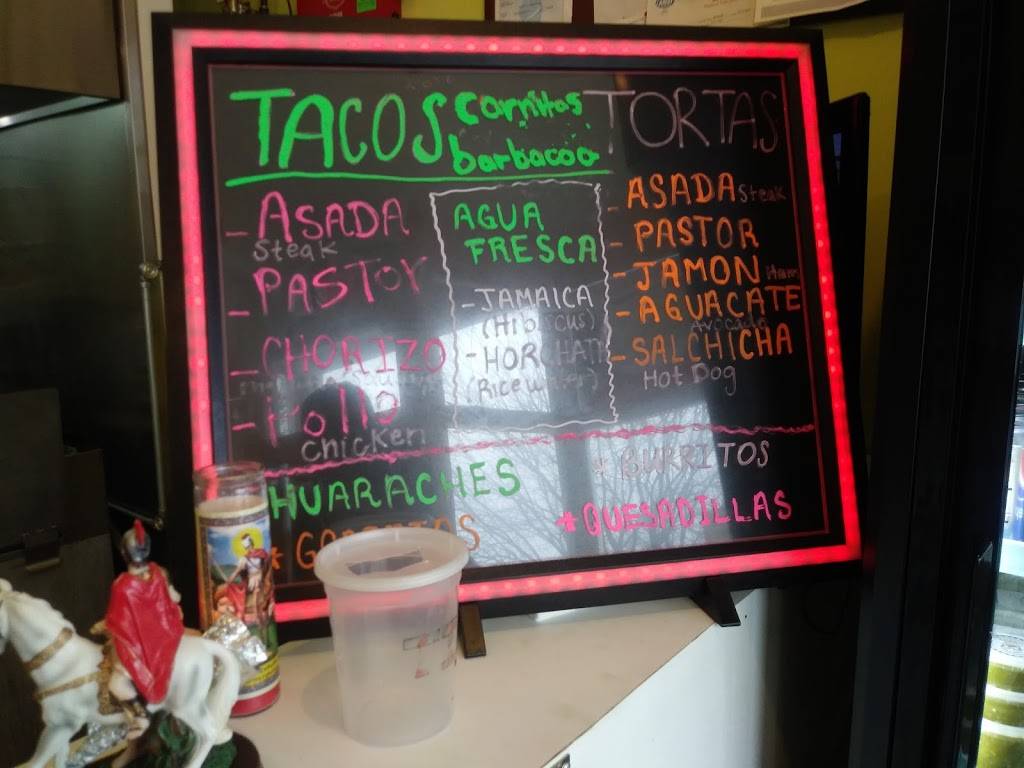 TACOS
Carnitas
barbacoa
- ASADA
Steak
- PASTOR
- CHORIZO
- Pollo
Chicken
AGUA
FRESCA
- JAMAICA
(Hibiscus)
- HORCHATA
(Rice water)
TORTAS
- ASADA Steak
- PASTOR
- JAMON Ham
- AGUACATE
Avocado
- SALCHICHA
Hot Dog
HUARACHES
* GORDITAS
* BURRITOS
* QUESADILLAS